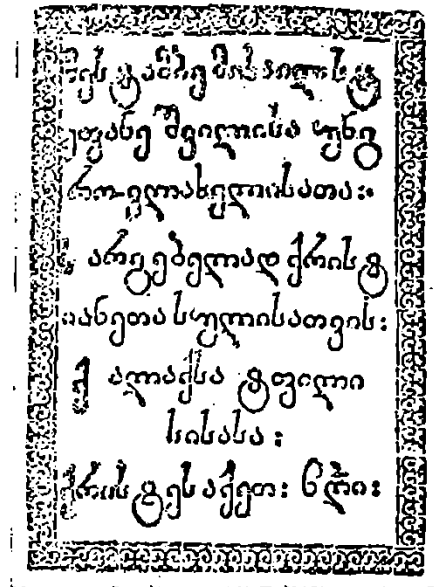 მესტამბე მიხაილ სტ
ეფანე შვილისა უნგ
რო-ვლახელისათა:
სარგებელად ქრისტ
იანეთა სულისათვის:
ქალაქსა ტფილი
სისასა:
ქრისტეს აქეთ: ჩღი: